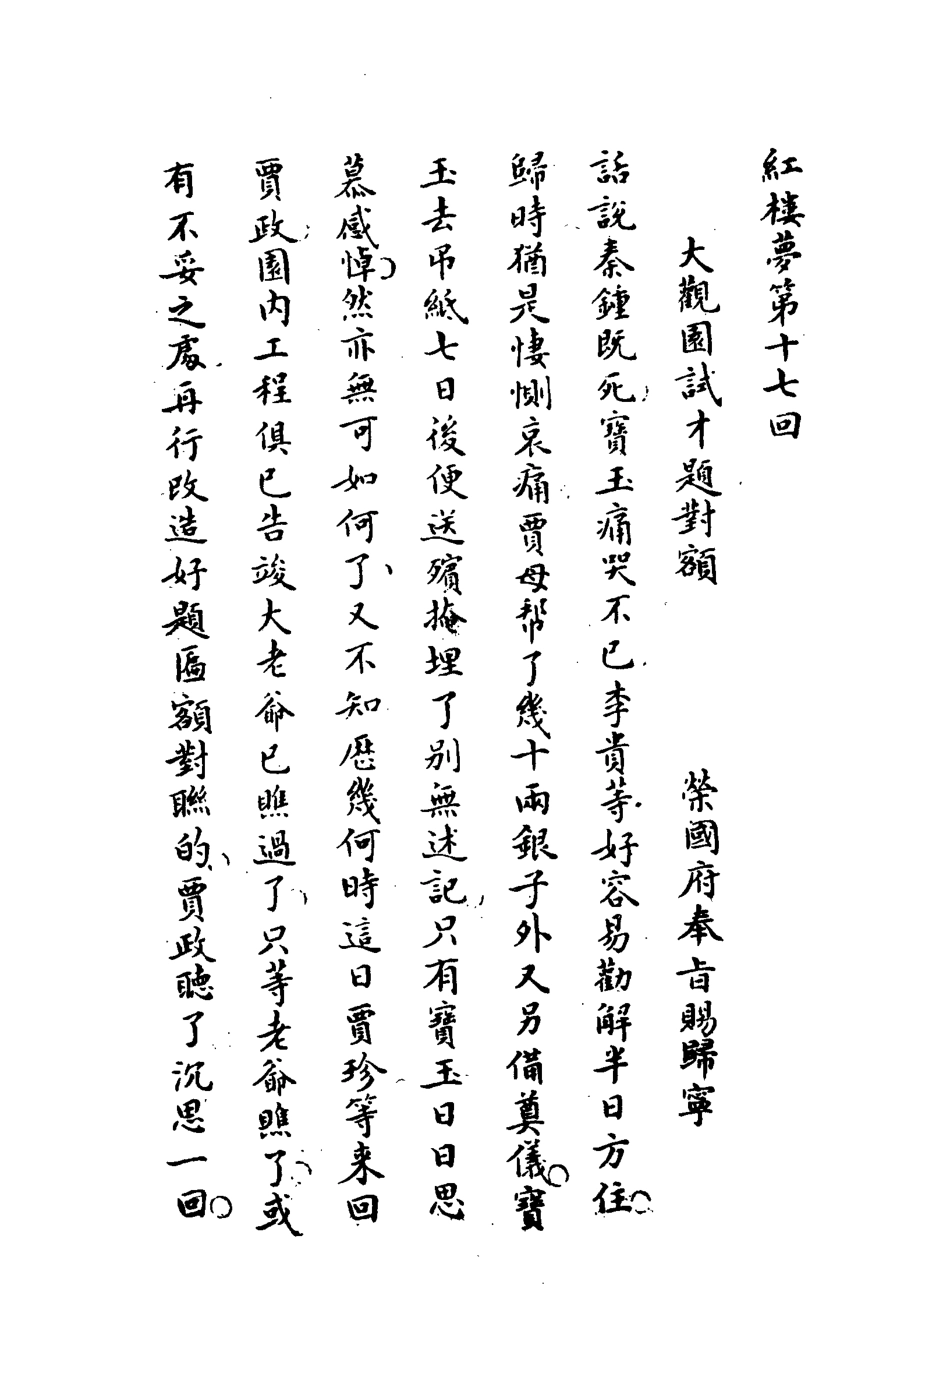 紅樓夢第十七回
大觀園試才題對額　榮國府奉旨賜歸寧
話說秦鍾既死寶玉痛哭不已李貴等好容易勸解半日方住
歸時猶是悽惻哀痛賈母幫了幾十兩銀子外又另備奠儀寶
玉去吊紙七日後便送殯掩埋了別無述記只有寶玉日日思
慕感悼然亦無可如何了又不知歷幾何時這日賈珍等来回
賈政園內工程俱已告竣大老爺已瞧過了只等老爺瞧了或
有不妥之處再行改造好題匾額對聯的賈政聽了沉思一回